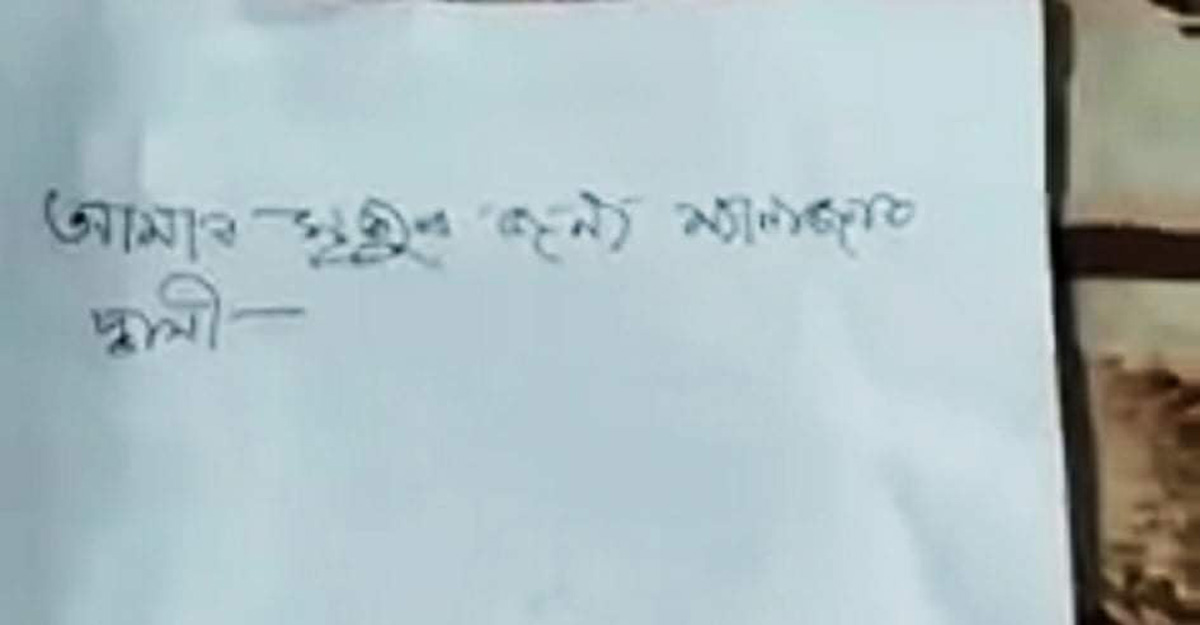 আমার মৃত্যুর জন্য ম্যানেজার
দায়ী—